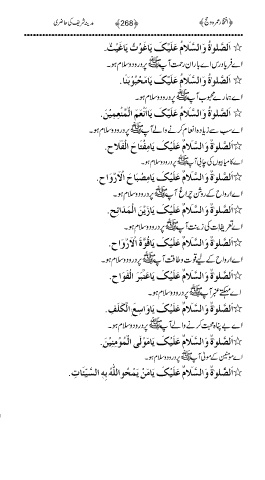 ﴿افکار عمرہ و حج﴾ ﴿268﴾ مدینہ شریف کی حاضری
☆ اَلصَّلٰوةُ وَالسَّلَامُ عَلَیْکَ یَاغَوْثُ یَاغَیْثُ.
اے فریادرس اے باران رحمت آپ ﷺ پر درود و سلام ہو۔
☆ اَلصَّلٰوةُ وَالسَّلَامُ عَلَیْکَ یَامَحْبُوْبَنَا.
اے ہمارے محبوب آپ ﷺ پر درود و سلام ہو۔
☆ اَلصَّلٰوةُ وَالسَّلَامُ عَلَیْکَ یَااَنْعَمَ الْمُنْعِمِیْنَ.
اے سب سے زیادہ انعام کرنے والے آپ ﷺ پر درود و سلام ہو۔
☆ اَلصَّلٰوةُ وَالسَّلَامُ عَلَیْکَ یَامِفْتَاحَ الْفَلَاحِ.
اے کامیابیوں کی چابی آپ ﷺ پر درود و سلام ہو۔
☆ اَلصَّلٰوةُ وَالسَّلَامُ عَلَیْکَ یَامِصْبَاحَ الْاَرْوَاحِ.
اے ارواح کے روشن چراغ آپ ﷺ پر درود و سلام ہو۔
☆ اَلصَّلٰوةُ وَالسَّلَامُ عَلَیْکَ یَازَیْنَ الْمَدَائِحِ.
اے تعریفات کی زینت آپ ﷺ پر درود و سلام ہو۔
☆ اَلصَّلٰوةُ وَالسَّلَامُ عَلَیْکَ یَاقُوَّةَ الْاَرْوَاحِ.
اے ارواح کے لیے قوت و طاقت آپ ﷺ پر درود و سلام ہو۔
☆ اَلصَّلٰوةُ وَالسَّلَامُ عَلَیْکَ یَاعَنْبَرَ الْفَوَاحِ.
اے مہکتے عنبر آپ ﷺ پر درود و سلام ہو۔
☆ اَلصَّلٰوةُ وَالسَّلَامُ عَلَیْکَ یَاوَاسِعَ الْکَلَفِ.
اے بے پناہ محبت کرنے والے آپ ﷺ پر درود و سلام ہو۔
☆ اَلصَّلٰوةُ وَالسَّلَامُ عَلَیْکَ یَامَوْلَی الْمُؤْمِنِیْنَ.
اے مومنین کے مولیٰ آپ ﷺ پر درود و سلام ہو۔
☆ اَلصَّلٰوةُ وَالسَّلَامُ عَلَیْکَ یَامَنْ یَمْحُو اللّٰهُ بِهِ السَّیِّئَاتِ.